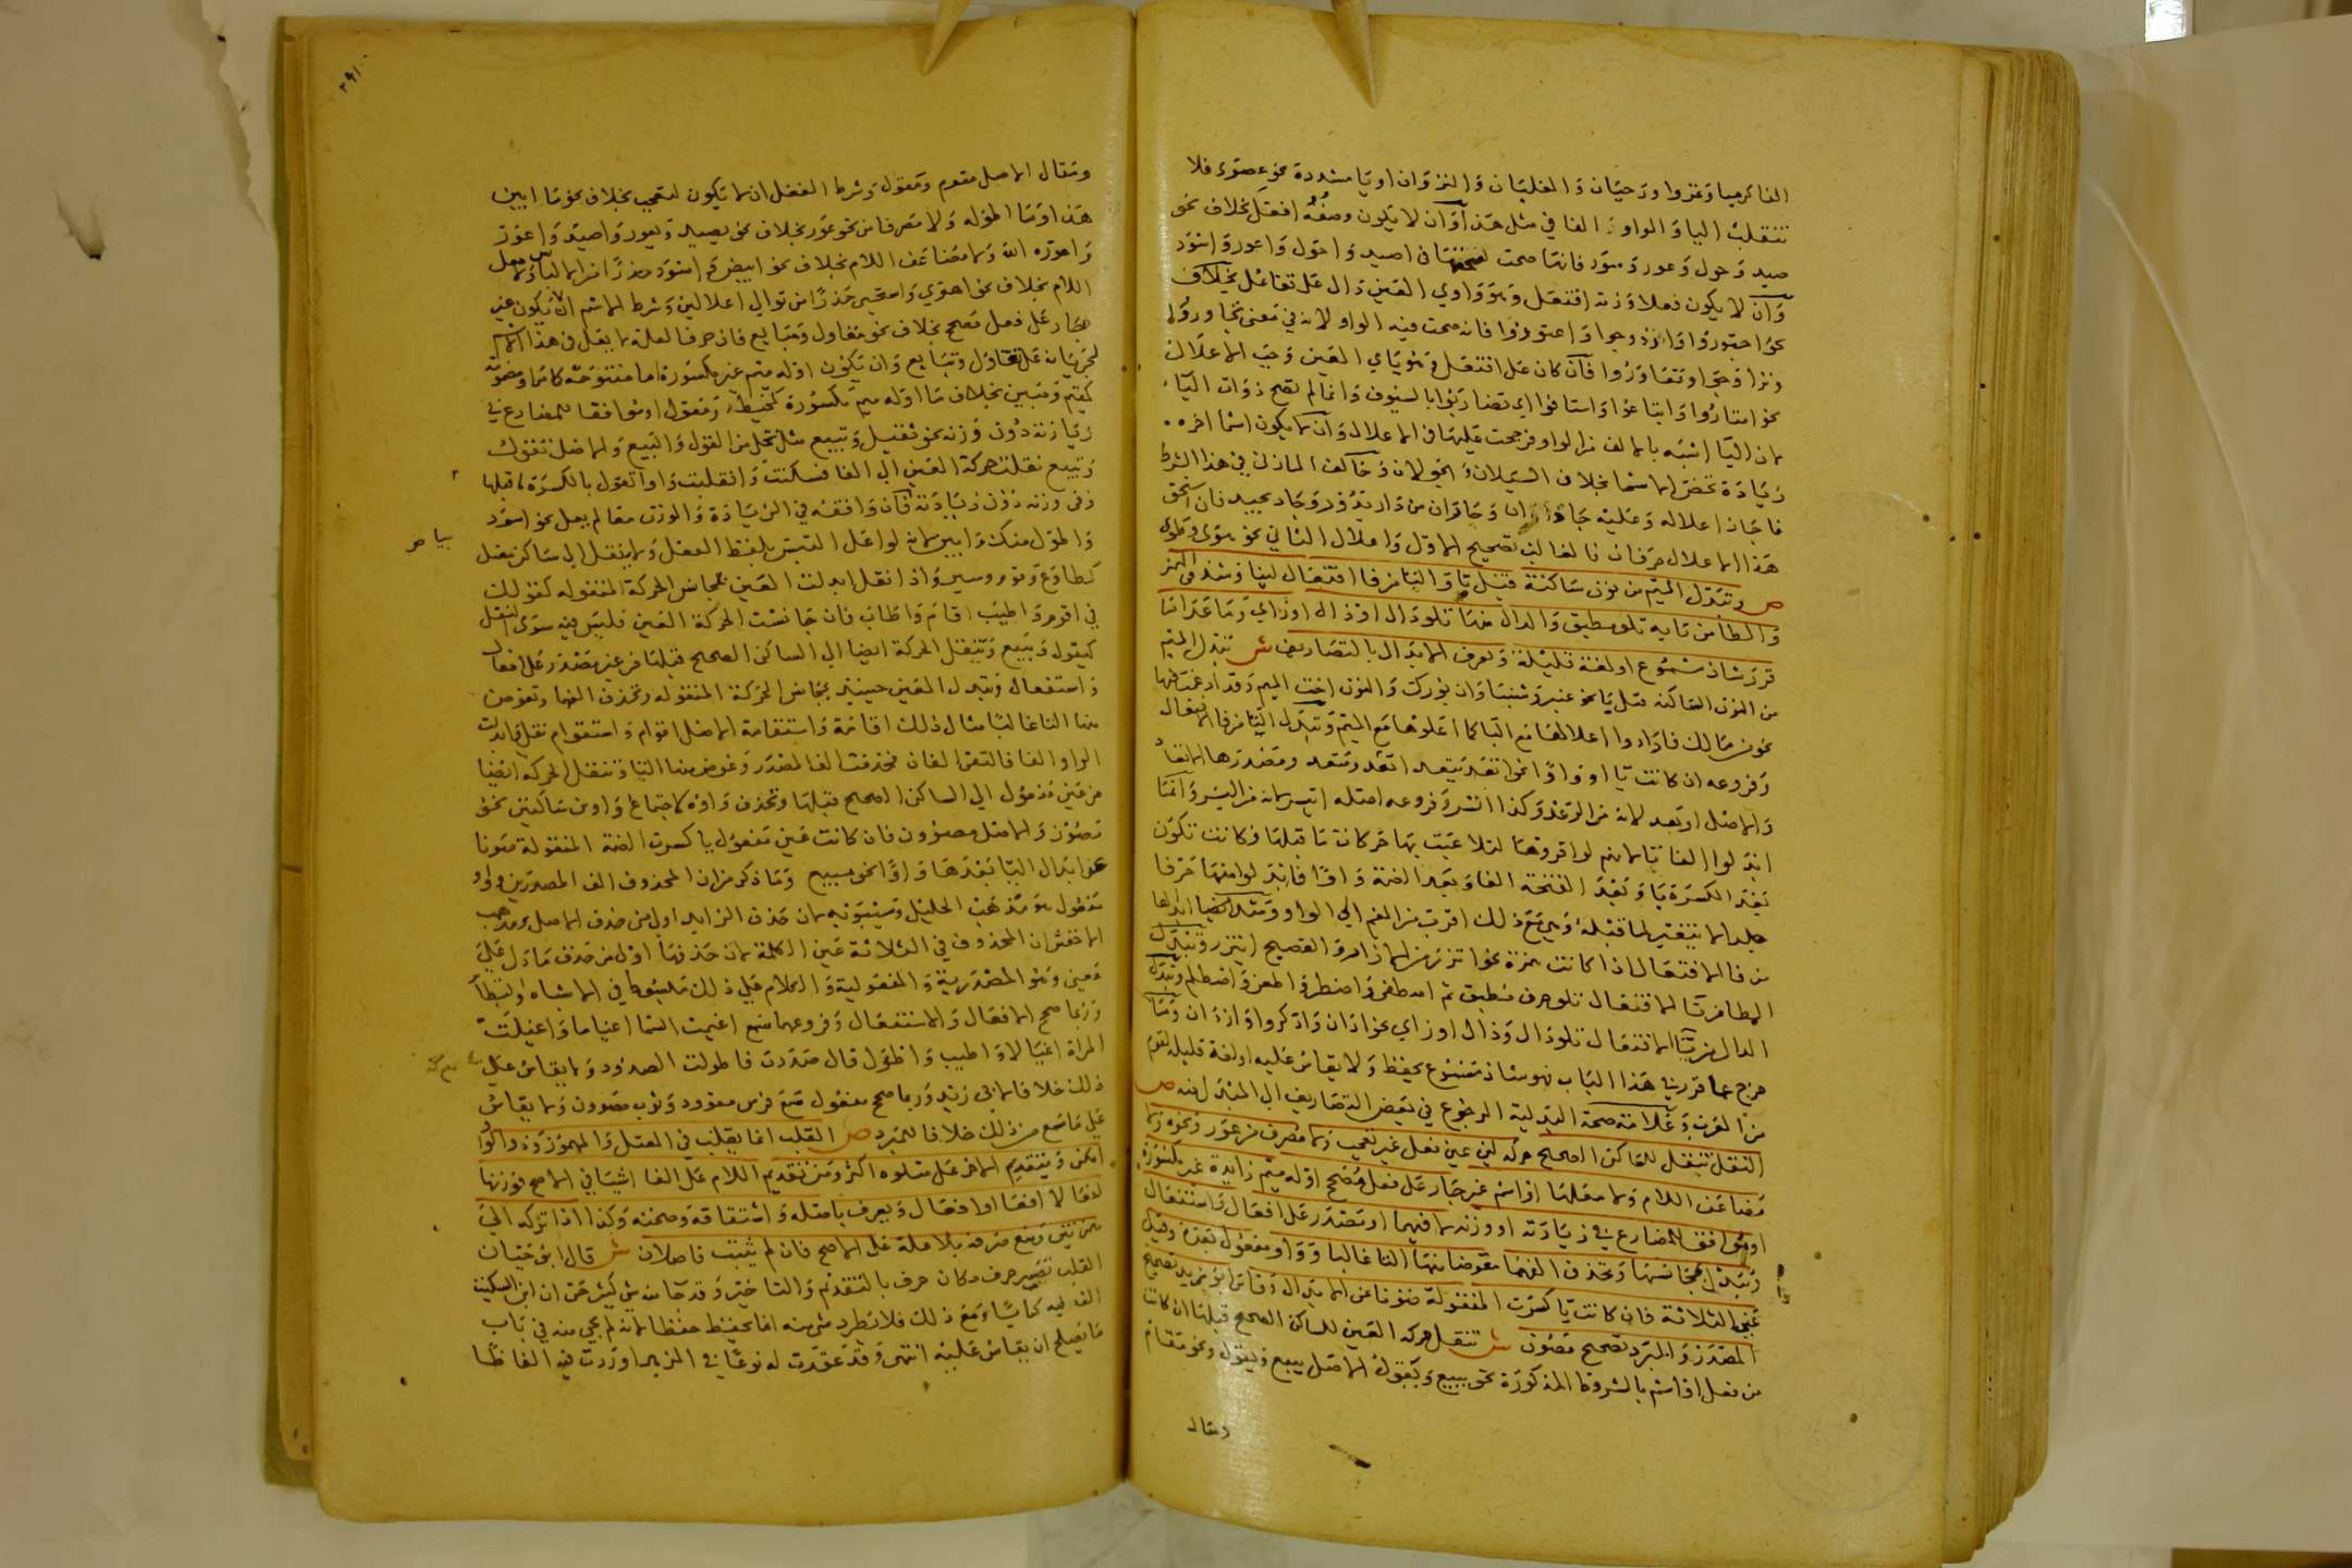 الفا كرميا وغزوا ورحيان والغليان والنزوان او يا مشددة نحو عصوى فلا
تنقلب اليا والواو الفا في مثل هذا وان لا يكون وصفه افعل بخلاف نحو
صيد وحول وعور وسود فانها صحت لصحتها في اصيد واحول واعور واسود
وان لا يكون فعلا وزنه افتعل وهو واوي العين دال على تفاعل بخلاف
نحو اجتوروا وازدوجوا واعتوروا فانه صحت فيه الواو لانه في معنى تجاوروا
وتزاوجوا وتعاوروا فان كان على افتعل وهو ياي العين وجب الاعلال
نحو امتازوا وابتاعوا واستافوا اي تضاربوا بالسيوف وانما لم تصح ذوات اليا
لان اليا اشبه بالالف من الواو فرجحت عليها في الاعلال وان لا يكون اسما اخره
زيادة تخص الاسما بخلاف السيلان والجولان وخالف المازني في هذا الشرط
فاجاز اعلاله وعليه جا داران وحادان من دار يدور وحاد يحيد فان استحق
هذا الاعلال حرفان فالغالب تصحيح الاول واعلال الثاني نحو هوى وطوى
ص وتبدل الميم من نون ساكنة قبل با والتا من فا افتعال لينا وشذ في الهمز
والطا من تايه تلو مطبق والدال منها تلو دال او ذال او زاي وما عدا ما
قرر شاذ مسموع او لغة قليلة ويعرف الابدال بالتصاريف ش تبدل الميم
من النون الساكنة قبل يا نحو عنبر وشنبا وان بورك والنون اخت الميم وقد ادغمت فيها
نحو من مالك فارادوا اعلالها مع البا كما اعلوها مع الميم وتبدل التا من فا الافتعال
وفروعه ان كانت يا او واوا نحو اتعد يتعد اتعد ومتعد ومصدرها الاتعاد
والاصل اوتعد لانه من الوعد وكذا اتسر وفروعه اصله ايتسر لانه من اليسر وانما
ابدلوا الفا تا لانهم لو اقروها لتلاعبت بها حركات ما قبلها فكانت تكون
بعد الكسرة يا وبعد الفتحة الفا وبعد الضمة واوا فابدلوا منها حرفا
جلدا لا يتغير لما قبله وهو مع ذلك اقرب من الفم الي الواو وشذ ايضا ابدالها
من فا الافتعال اذا كانت همزة نحو اتزر من الازار والفصيح ايتزر وتبدل
الطا من تا الافتعال تلو حرف مطبق نحو اصطفى واضطر واطعن واضطلم وتبدل
الدال من تا الافتعال تلو دال وذال او زاي نحو ادان واذكروا وازدان وما
خرج عما قرر في هذا الباب فهو شاذ مسموع يحفظ ولا يقاس عليه او لغة قليلة لقوم
من العرب وعلامة صحة البدلية الرجوع في بعض التصاريف الي المبدل منه ص
النقل تنقل للساكن الصحيح حركة لين عين فعل غير تعجب ولا مصرف من عور ونحوه ولا
مضاعف اللام ولا معلها او اسم غير جار على فعل مصحح اوله ميم زايدة غير مكسورة
او موافق المضارع في زيادته او وزنه لا فيهما او مصدر على افعال واستفعال
وتبدل بمجانسها وتحذف الفهما معوضا منها التا غالبا وواو مفعول بعده وقيل
عين الثلاثة فان كانت يا كسرت المنقولة صونا عن الابدال وقاس ابو زيد تصحيح
المصدر والمبرد تصحيح مصون ش تنقل حركة العين للساكن الصحيح قبلها ان كانت
من فعل او اسم بالشروط المذكورة نحو يبيع ويقول الاصل يبيع ويقول ونحو مقام
ومقال
٢٩١
ومقال الاصل مقوم ومقول وشرط الفعل ان لا يكون لتعجب بخلاف نحو ما ابين
هذا وما اطوله ولا مصرفا من نحو عور بخلاف نحو يصيد ويعور واصيد واعور
واعوره الله ولا مضاعف اللام بخلاف نحو ابيض واسود حذرا من الالتباس ولا معل
اللام بخلاف نحو اهوي واستحيى حذرا من توالي اعلالين وشرط الاسم ان يكون غير
جار على فعل تصحح بخلاف نحو مقاول ومبايع فان حرف العلة لا يعل في هذا الاسم
لجريانه على تقاول وتبايع وان يكون اوله ميم غير مكسورة اما مفتوحة كما مر او مضمومة
كمقيم ومبين بخلاف ما اوله ميم مكسورة كمخيط ومقول او موافقا للمضارع في
زيادته دون وزنه نحو تقيل وتبيع مثل تحلئ من القول والبيع والاصل تقول
وتبيع نقلت حركة العين الي الفا فسكنت وانقلبت واو تقول بالكسرة ما قبلها
وفي وزنه دون زيادته فان وافقه في الزيادة والوزن معا لم يعل نحو اسود
واطول منك وابيض لانه لو اعل التبس بلفظ الفعل ولا ينقل الي ساكن معتل
بيا صر
كطاوع وقوم وسير واذا نقل ابدلت العين بمجانس الحركة المنقولة كقولك
في اقوم واطيب اقام واطاب فان جانست الحركة العين فليس فيه سوى النقل
كيقول ويبيع وتنقل الحركة ايضا الي الساكن الصحيح قبلها من عين مصدر على افعال
واستفعال وتبدل العين حينيذ بمجانس الحركة المنقولة وتحذف الفهما وتعوض
منها التا غالبا مثال ذلك اقامة واستقامة الاصل اقوام واستقوام نقل وابدلت
الواو الفا فالتقى الفان فحذفت الف المصدر وعوض منها التا وتنقل الحركة ايضا
من عين مفعول الي الساكن الصحيح قبلها وتحذف واوه لاجتماع واوين ساكنين نحو
مصون والاصل مصوون فان كانت عين مفعول يا كسرت الضمة المنقولة صونا
عن ابدال اليا بعدها واوا نحو مبيع وما ذكر من ان المحذوف الف المصدرين وواو
مفعول هو مذهب الخليل وسيبويه لان حذف الزايد اولي من حذف الاصل ومذهب
الاخفش ان المحذوف في الثلاثة عين الكلمة لان حذفها اولي من حذف ما دل على
معنى وهو المصدرية والمفعولية والكلام على ذلك مبسوط في الاشباه
وربما صحح الافعال والاستفعال وفروعهما سمع اغيمت السما اغياما واغيلت
المراة اغيالا واطيب واطول قال صددت فاطولت الصدود ولا يقاس على
ذلك خلافا لابي زيد وربما صحح مفعول سمع فرس مقوود وثوب مصوون ولا يقاس
على ما سمع من ذلك خلافا للمبرد ص القلب انما يقلب في المعتل والمهموز وذو الواو
امكن وبتقديم الاخر على متلوه اكثر ومن تقديم اللام على الفا اشيا في الاصح فوزنها
لفعا لا افعا او افعال ويعرف باصله واشتقاقه وصحته وكذا اذا تركه الي
همزتين ومنع صرفه بلا علة على الاصح فان لم يثبت فاصلان ش قال ابو حيان
القلب تصيير حرف مكان حرف بالتقديم والتاخير وقد جا منه شي كثير حتى ان ابن السكيت
الف فيه كتابا ومع ذلك فلا يطرد شي منه انما يحفظ حفظا لانه لم يجي منه في باب
ما يصلح ان يقاس عليه انتهى وقد عقدت له نوعا في المزهر اوردت فيه الفاظا